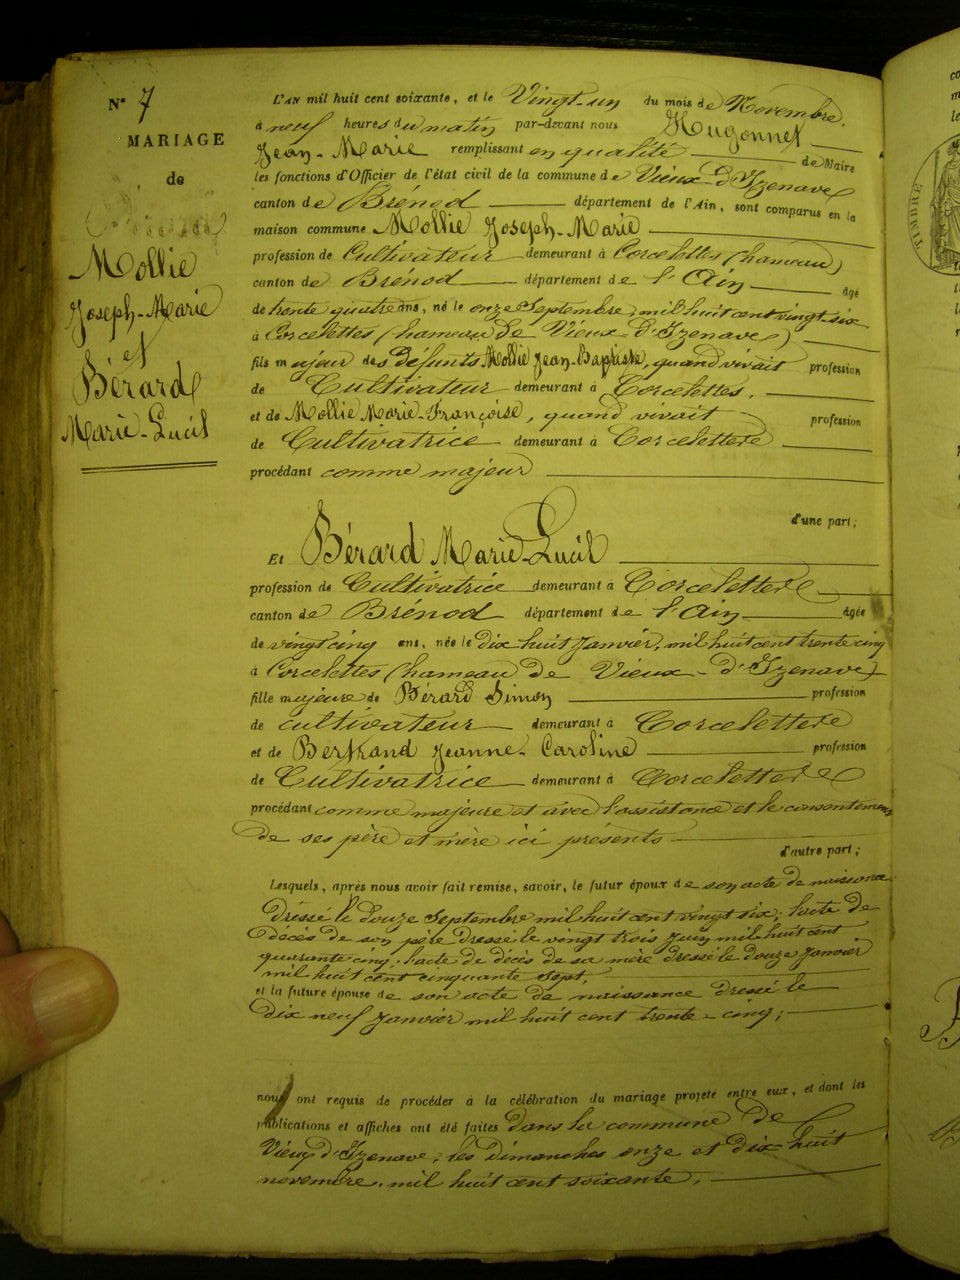 N° 7
MARIAGE
de
Mollie
Joseph-Marie
et
Bérard
Marie-Lucil
L'AN mil huit cent soixante, et le Vingt-un du mois de Novembre,
à neuf heures du matin par-devant nous Hugonnet
Jean-Marie remplissant en qualité de Maire
les fonctions d'Officier de l'état civil de la commune de Vieux-d'Izenave
canton de Brénod département de l'Ain, sont comparus en la
maison commune Mollie Joseph-Marie
profession de Cultivateur demeurant à Corcelettes (hameau)
canton de Brénod département de l'Ain âgé
de trente quatre ans, né le onze Septembre, mil huit cent vingt-six
à Corcelettes (hameau de Vieux-d'Izenave)
fils majeur des défunts Mollie Jean-Baptiste, quand vivait profession
de Cultivateur demeurant à Corcelettes,
et de Mollie Marie-Françoise, quand vivait profession
de Cultivatrice demeurant à Corcelettere
procédant comme majeur
d'une part;
Et Bérard Marie-Lucil
profession de Cultivatrice demeurant à Corcelettere
canton de Brénod département de l'Ain âgée
de vingt cinq ans, née le dix huit Janvier, mil huit cent trente cinq
à Corcelettes (hameau de Vieux-d'Izenave)
fille majeure de Bérard Simon profession
de cultivateur demeurant à Corcelettere
et de Bertrand Jeanne-Caroline profession
de Cultivatrice demeurant à Corcelettere
procédant comme majeure et avec l'assistance et le consentement
de ses père et mère ici presents
d'autre part;
Lesquels, après nous avoir fait remise, savoir, le futur époux de son acte de naissance
dressé le douze Septembre mil huit cent vingt six; l'acte de
décès de son père dressé le vingt trois Juin mil huit cent
quarante cinq, l'acte de décès de sa mère dressé le douze Janvier
mil huit cent cinquante sept,
et la future épouse de son acte de naissance dressé le
dix neuf Janvier mil huit cent trente-cinq;
nous ont requis de procéder à la célébration du mariage projeté entre eux, et dont les
publications et affiches ont été faites dans la commune de
Vieux d'Izenave, les dimanches onze et dix huit
novembre, mil huit cent soixante,
TIMBRE